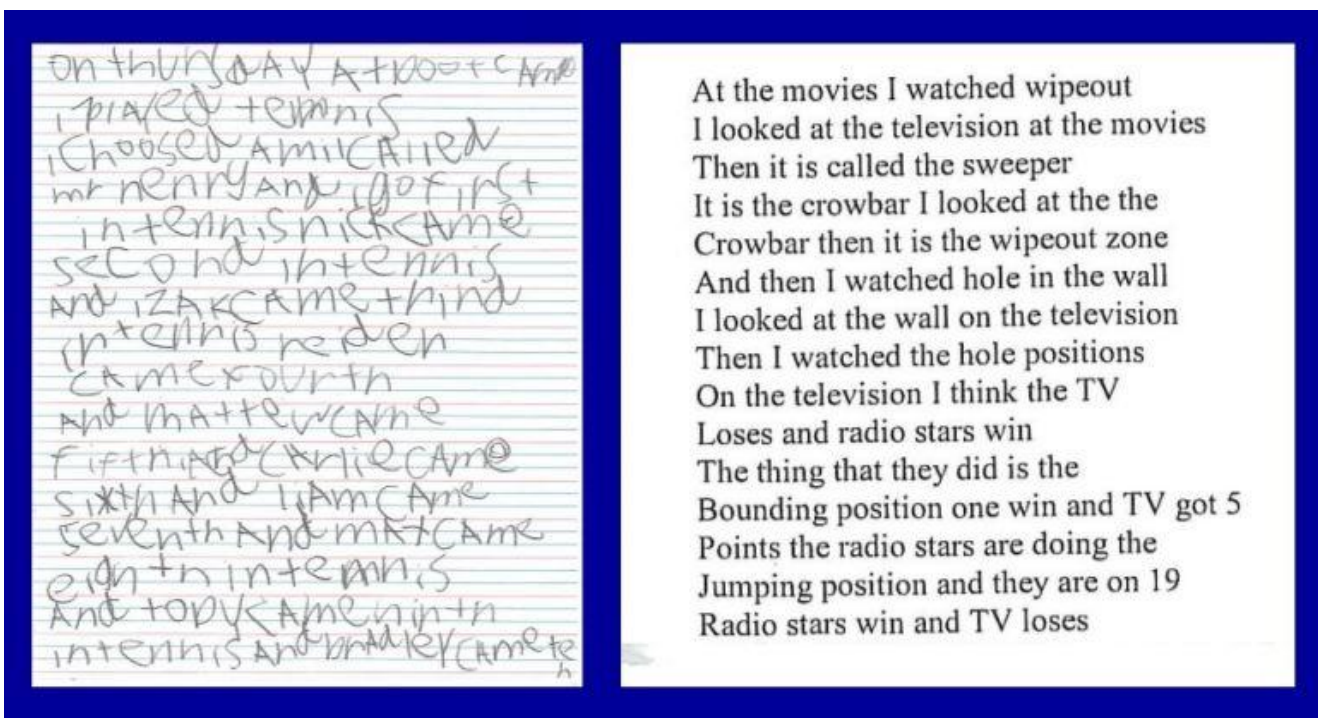 on thursday At boot cAmp
i plAyed tennis
i choosed A mii cAlled
mr henry And i got first
in tennis nick cAme
second in tennis
And izAk cAme third
in tennis reiden
cAme fourth
And mAttew cAme
fifth And cArlie cAme
sixth And liAm cAme
seventh And mAt cAme
eighth in tennis
And toby cAme ninth
in tennis And brAdley cAme te
n
At the movies I watched wipeout
I looked at the television at the movies
Then it is called the sweeper
It is the crowbar I looked at the the
Crowbar then it is the wipeout zone
And then I watched hole in the wall
I looked at the wall on the television
Then I watched the hole positions
On the television I think the TV
Loses and radio stars win
The thing that they did is the
Bounding position one win and TV got 5
Points the radio stars are doing the
Jumping position and they are on 19
Radio stars win and TV loses